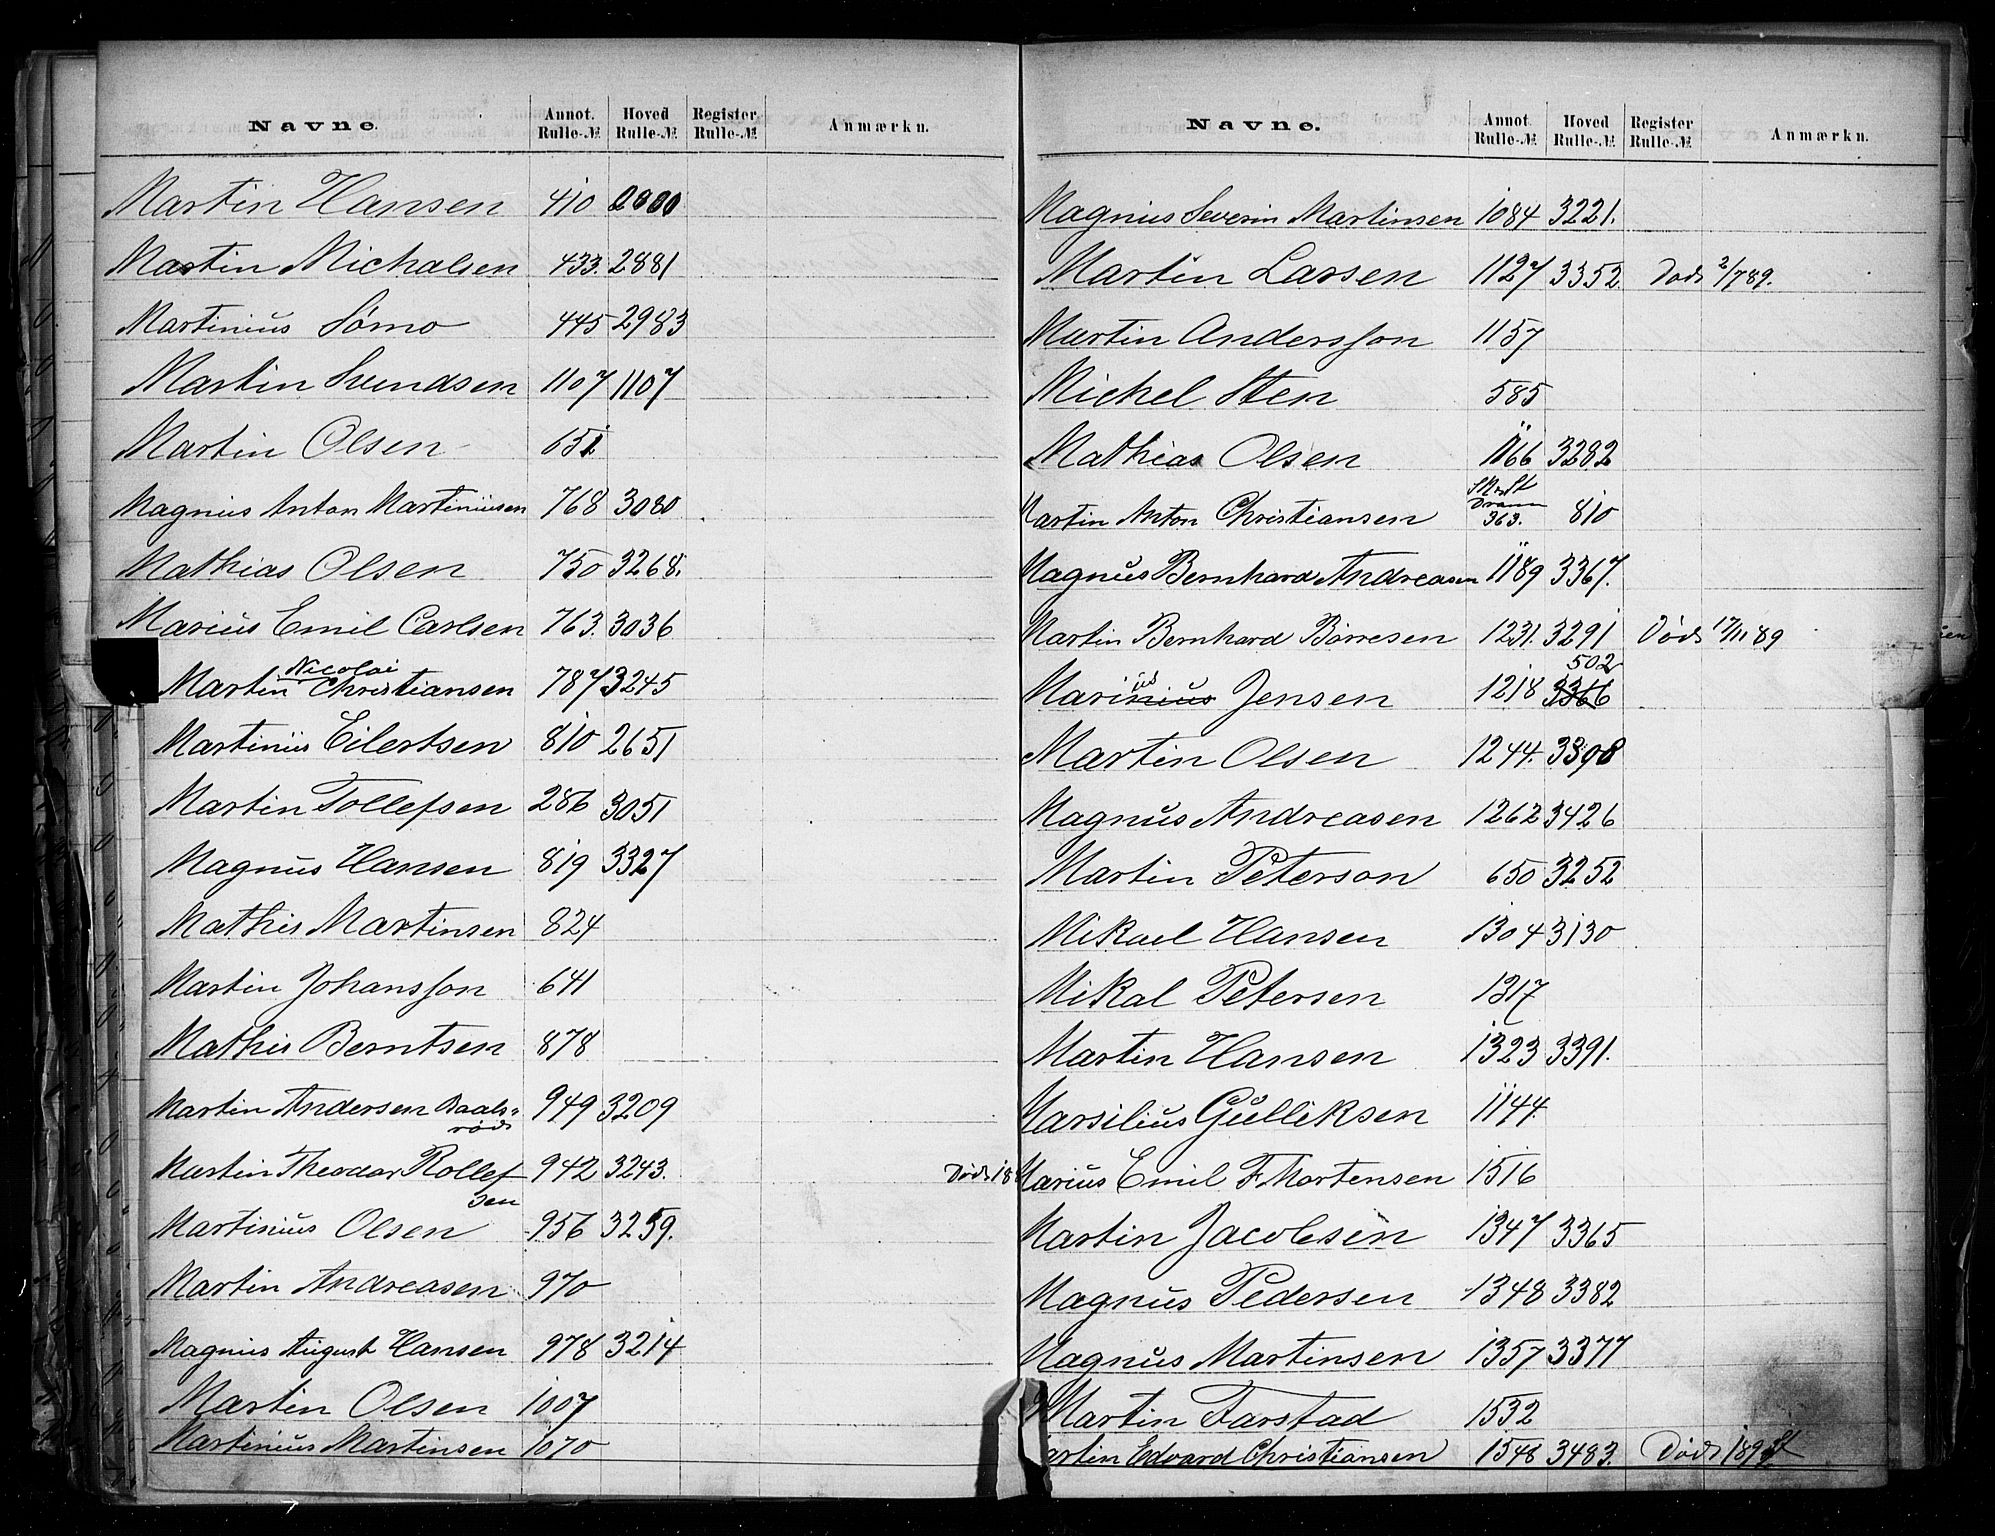 Navne. Annot. Rulle-№ Hoved Rulle-№ Register Rulle-№ Anmærkn.
Martin Hansen 410
Martin Michalsen 433. 2881
Martinius Sømo 445 2983
Martin Svendsen 1107 1107
Martin Olsen 651
Magnus Anton Martiniusen 768 3080
Mathias Olsen 750 3268.
Marius Emil Carlsen 763. 3036
Nicolai
Martin Christiansen 787 3245
Martinius Eilertsen 810 2651
Martin Tollefsen 286 3051
Magnus Hansen 819 3327
Mathis Martinsen 824
Martin Johansson 641
Mathis Berntsen 878
Martin Andersen Baals- 949 3209
rød
Martin Theodor Rollef 942 3243. Død 18
sen
Martinius Olsen 956 3259.
Martin Andreasen 970
Magnus August Hansen 978 3214
Martin Olsen 1007
Martinius Martinsen 1070
Navne. Annot. Rulle-№ Hoved Rulle-№ Register Rulle-№ Anmærkn.
Magnus Severin Martinsen 1084 3221.
Martin Larsen 1127 3352 Død 2/789.
Martin Andersson 1157
Michel Sten 585
Mathias Olsen 1166 3282
Dram
Martin Anton Christiansen 363. 810
Magnus Bernhard Andreasen 1189 3367.
Martin Bernhard Børresen 1231. 3291 Død 17/11 89
us 502
Marinius Jensen 1218 3366
Martin Olsen 1244. 3398
Magnus Andreasen 1262 3426
Martin Peterson 650 3252
Mikael Hansen 1304 3130
Mikal Petersen 1317
Martin Hansen 1323 3391.
Marsilius Gulliksen 1144.
Marius Emil F. Mortensen 1516
Martin Jacobsen 1347 3365
Magnus Pedersen 1348 3382
Magnus Martinsen 1357 3377
Martin Farstad 1532
Martin Edvard Christiansen 1548 3483. Død